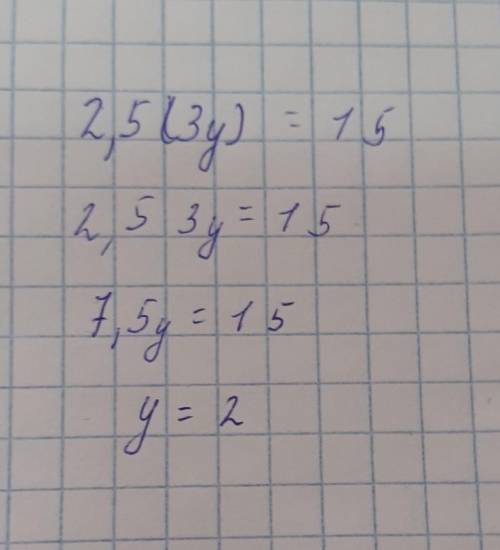 2,5(3y) = 15
2,5 3y = 15
7,5y = 15
y = 2